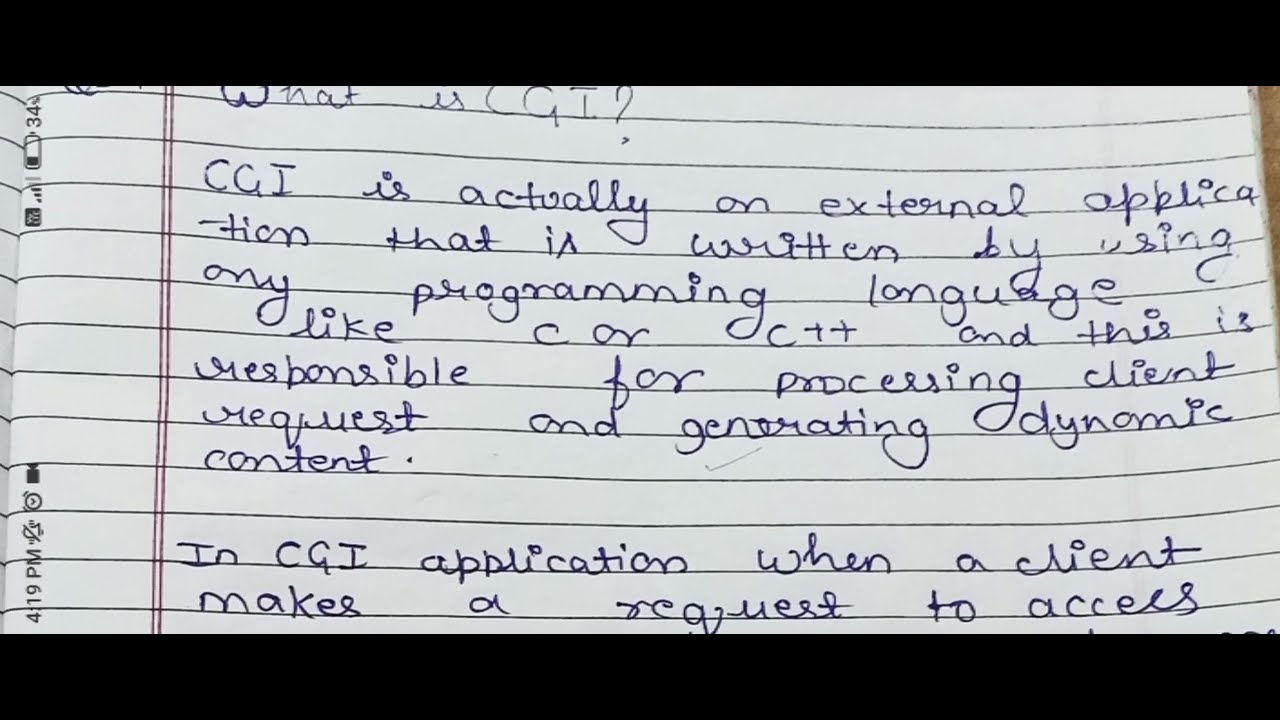 What is CGI?
CGI is actually an external applica
-tion that is written by using
any programming language
like C or C++ and this is
responsible for processing client
request and generating dynamic
content.
In CGI application when a client
makes a request to access
4:19 PM
34%